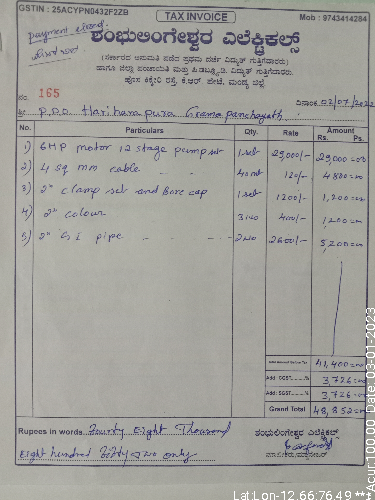 GSTIN : 25ACYPN0432F2ZB
TAX INVOICE
Mob : 9743414284
payment
ಶಂಭುಲಿಂಗೇಶ್ವರ ಎಲೆಕ್ಟ್ರಿಕಲ್ಸ್
(ಸರ್ಕಾರದ ಅನುಮತಿ ಪಡೆದ ಪ್ರಥಮ ದರ್ಜೆ ವಿದ್ಯುತ್ ಗುತ್ತಿಗೆದಾರರು)
ಹಾಗೂ ಜಿಲ್ಲಾ ಪಂಚಾಯತಿ ಮತ್ತು ಪಿಡಬ್ಲ್ಯೂಡಿ. ವಿದ್ಯುತ್ ಗುತ್ತಿಗೆದಾರರು
ಹೊಸ ಕಿಕ್ಕೇರಿ ರಸ್ತೆ, ಕೆ.ಆರ್. ಪೇಟೆ, ಮಂಡ್ಯ ಜಿಲ್ಲೆ
No. 165
ದಿನಾಂಕ 02/07/202
ಶ್ರೀ P.D.O Hariharapura Gramapanchayath
No. Particulars Qty. Rate Amount
Rs. Ps.
1) 6HP motor 12 stage pumpset 1 set 29,000/- 29,000=00
2) 4 sq mm cable 40 mt 120/- 4800=00
3) 2" clamp set and Bore cap 1 set 1200/- 1,200=00
4) 2" colour 3 no 400/- 1,200=00
5) 2" G I pipe 2 no 2600/- 5,200=00
41,400=00
Add: CGST.........% 3,726=00
Add: SGST.........% 3,726=00
Grand Total 48,852=00
Rupees in words. Fourty Eight Thousand
Eight hundred Fifty Two only
ಶಂಭುಲಿಂಗೇಶ್ವರ ಎಲೆಕ್ಟ್ರಿಕಲ್ಸ್
Lat Lon-12.66:76.49
Acur:100.00 Date:03-01-2023